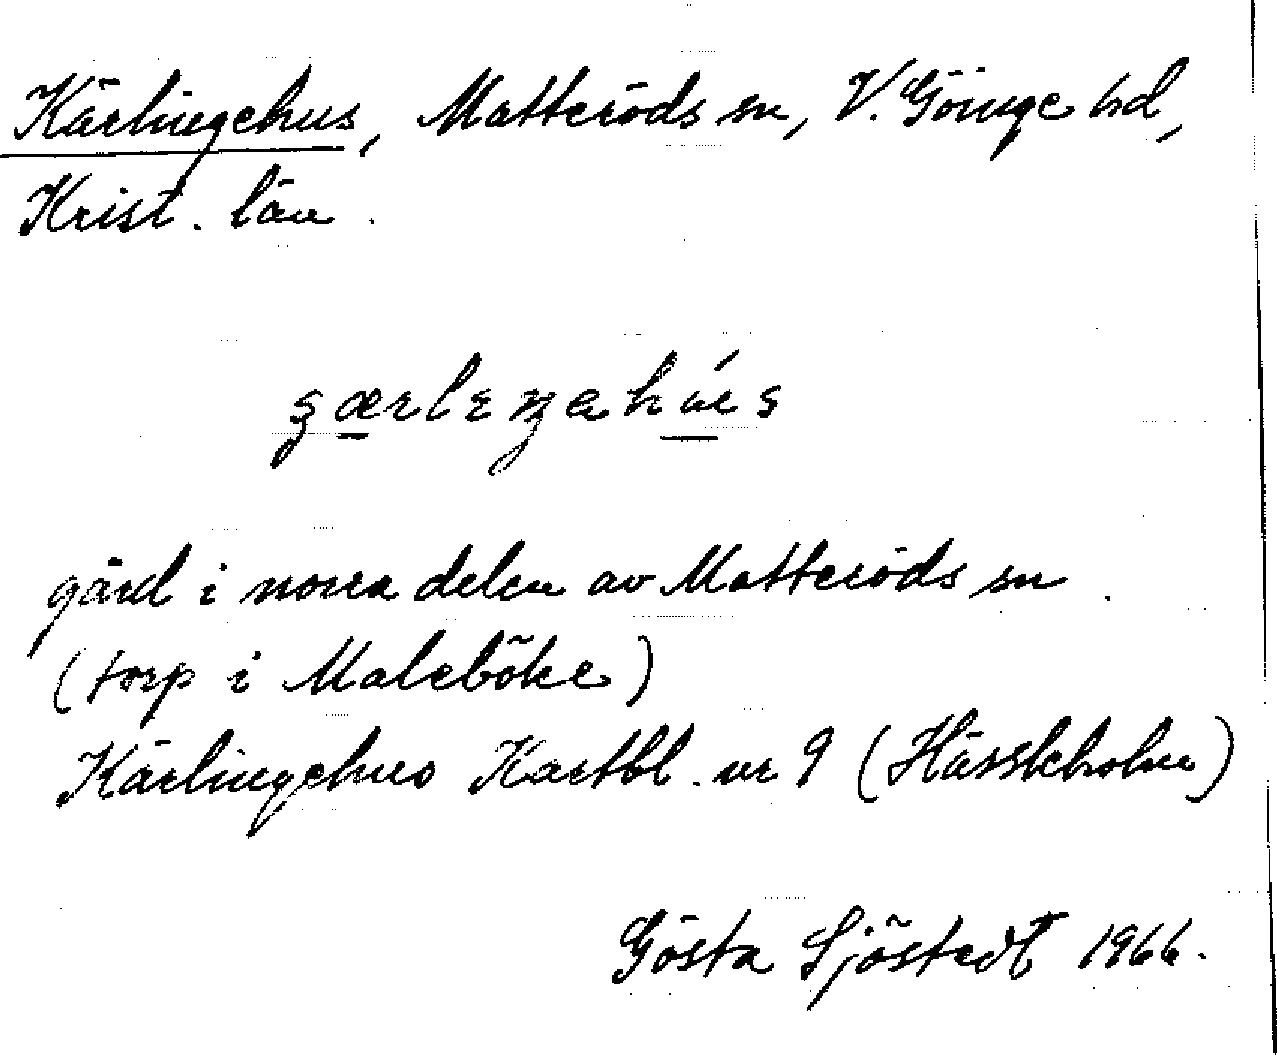 Kärlingehus, Matteröds sn, V. Göinge hd,
Krist. län.
gård i norra delen av Matteröds sn.
(torp i Maleböke)
Kärlingehus Kartbl. nr 9 (Hässleholm)
Gösta Sjöstedt 1966.